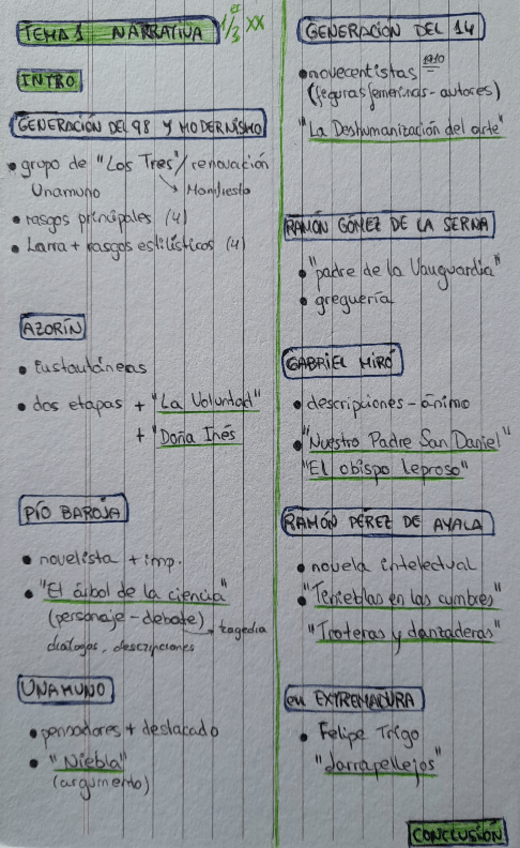 TEMA 1 NARRATIVA 1er/3 XX
INTRO
GENERACIÓN DEL 98 Y MODERNISMO
• grupo de "Los Tres"/renovación
Unamuno → Manifiesto
• rasgos principales (4)
• Larra + rasgos estilísticos (4)
AZORÍN
• Instantáneas
• dos etapas + "La Voluntad"
+ "Doña Inés
PÍO BAROJA
• novelista + imp.
• "El árbol de la ciencia"
(personaje - debate) → tragedia
dialogos, descripciones
UNAMUNO
• pensadores + destacado
• "Niebla"
(argumento)
GENERACIÓN DEL 14
• novecentistas 1910
(figuras femeninas - autores)
"La Deshumanización del arte"
RAMÓN GÓMEZ DE LA SERNA
• "padre de la Vanguardia"
• greguería
GABRIEL MIRÓ
• descripciones - ánimo
• "Nuestro Padre San Daniel"
"El obispo leproso"
RAMÓN PÉREZ DE AYALA
• novela intelectual
• "Tenieblas en las cumbres"
"Troteras y danzaderas"
en EXTREMADURA
• Felipe Trigo
"Jarrapellejos"
CONCLUSIÓN